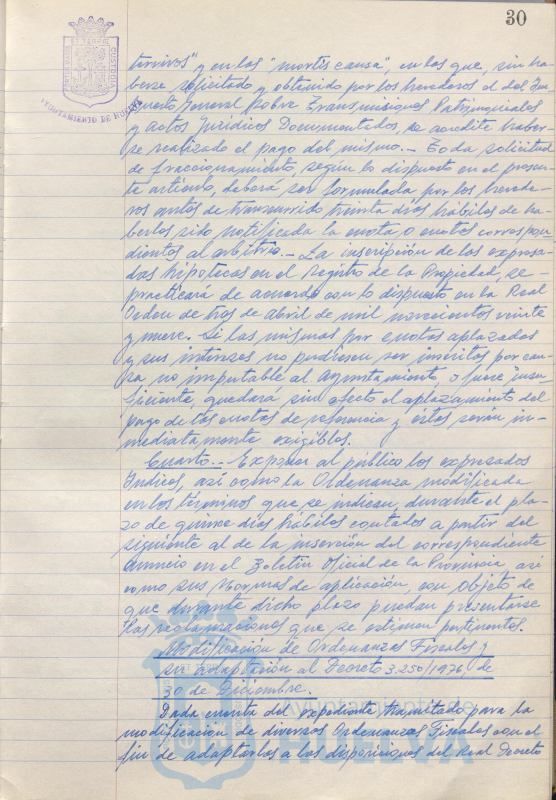 30
AYUNTAMIENTO DE HUELVA
tervivos" y en las "mortis causa", en las que, sin ha-
berse solicitado y obtenido por los herederos el del Im-
puesto General sobre Transmisiones Patrimoniales
y Actos Jurídicos Documentados, se acredite haber-
se realizado el pago del mismo.- Toda solicitud
de fraccionamiento, según lo dispuesto en el presen-
te artículo, deberá ser formulada por los herede-
ros antes de transcurrido treinta días hábiles de ha-
berles sido notificada la cuota o cuotas correspon-
dientes al arbitrio.- La inscripción de las expresa-
das hipotecas en el Registro de la Propiedad, se-
practicará de acuerdo con lo dispuesto en la Real
Orden de tres de abril de mil novecientos veinte
y nueve. Si las mismas por cuotas aplazadas
y sus intereses no pudiesen ser inscritas por cau-
sa no imputable al Ayuntamiento, o fuere insu-
ficiente, quedará sin efecto el aplazamiento del
pago de las cuotas de referencia y éstas serán in-
mediatamente exigibles.
Cuarto.- Exponer al público los expresados
Indices, así como la Ordenanza modificada
en los términos que se indican, durante el pla-
zo de quince días hábiles contados a partir del
siguiente al de la inserción del correspondiente
anuncio en el Boletín Oficial de la Provincia, así
como sus Normas de aplicación, con objeto de
que durante dicho plazo puedan presentarse
las reclamaciones que se estimen pertinentes.
Modificación de Ordenanzas Fiscales y
su adaptación al Decreto 3.250/1976, de
30 de Diciembre.
Dada cuenta del expediente tramitado para la
modificación de diversas Ordenanzas Fiscales con el
fin de adaptarlas a las disposiciones del Real Decreto